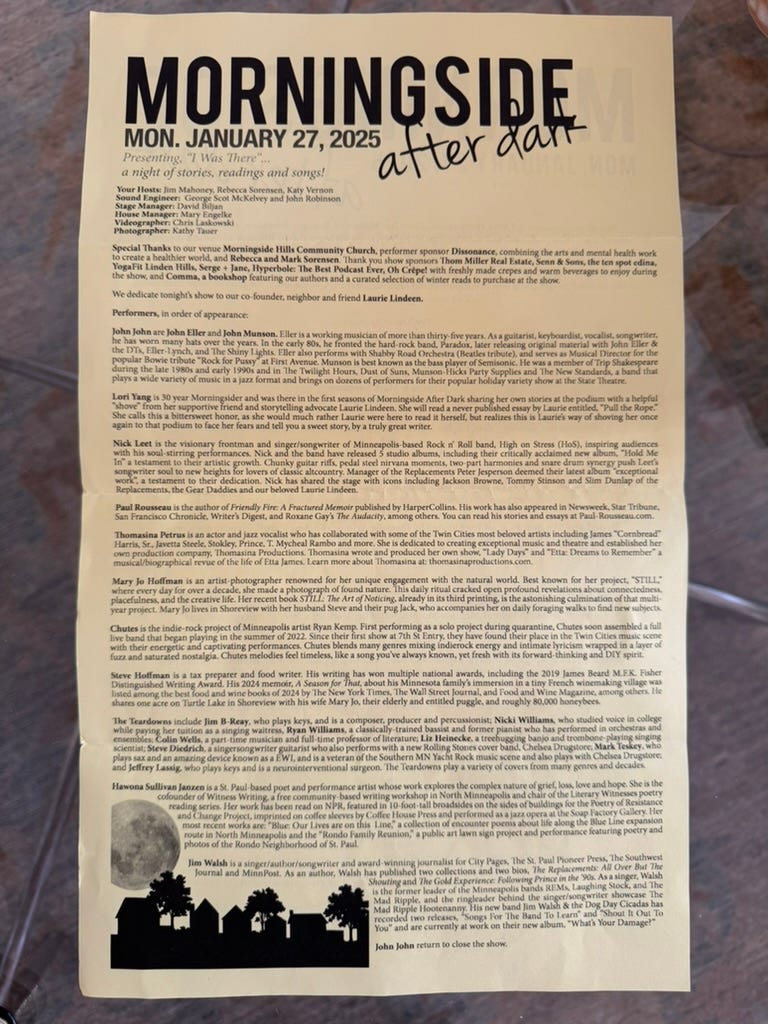 MORNINGSIDE
after dark
MON. JANUARY 27, 2025
Presenting, "I Was There"...
a night of stories, readings and songs!
Your Hosts: Jim Mahoney, Rebecca Sorensen, Katy Vernon
Sound Engineer: George Scot McKelvey and John Robinson
Stage Manager: David Biljan
House Manager: Mary Engelke
Videographer: Chris Laskowski
Photographer: Kathy Tauer
Special Thanks to our venue Morningside Hills Community Church, performer sponsor Dissonance, combining the arts and mental health work
to create a healthier world, and Rebecca and Mark Sorensen. Thank you show sponsors Thom Miller Real Estate, Senn & Sons, the ten spot edina,
YogaFit Linden Hills, Serge + Jane, Hyperbole: The Best Podcast Ever, Oh Crêpe! with freshly made crepes and warm beverages to enjoy during
the show, and Comma, a bookshop featuring our authors and a curated selection of winter reads to purchase at the show.
We dedicate tonight's show to our co-founder, neighbor and friend Laurie Lindeen.
Performers, in order of appearance:
John John are John Eller and John Munson. Eller is a working musician of more than thirty-five years. As a guitarist, keyboardist, vocalist, songwriter,
he has worn many hats over the years. In the early 80s, he fronted the hard-rock band, Paradox, later releasing original material with John Eller &
the DTs, Eller-Lynch, and The Shiny Lights. Eller also performs with Shabby Road Orchestra (Beatles tribute), and serves as Musical Director for the
popular Bowie tribute "Rock for Pussy" at First Avenue. Munson is best known as the bass player of Semisonic. He was a member of Trip Shakespeare
during the late 1980s and early 1990s and in The Twilight Hours, Dust of Suns, Munson-Hicks Party Supplies and The New Standards, a band that
plays a wide variety of music in a jazz format and brings on dozens of performers for their popular holiday variety show at the State Theatre.
Lori Yang is 30 year Morningsider and was there in the first seasons of Morningside After Dark sharing her own stories at the podium with a helpful
"shove" from her supportive friend and storytelling advocate Laurie Lindeen. She will read a never published essay by Laurie entitled, "Pull the Rope."
She calls this a bittersweet honor, as she would much rather Laurie were here to read it herself, but realizes this is Laurie's way of shoving her once
again to that podium to face her fears and tell you a sweet story, by a truly great writer.
Nick Leet is the visionary frontman and singer/songwriter of Minneapolis-based Rock n' Roll band, High on Stress (HoS), inspiring audiences
with his soul-stirring performances. Nick and the band have released 5 studio albums, including their critically acclaimed new album, "Hold Me
In" a testament to their artistic growth. Chunky guitar riffs, pedal steel nirvana moments, two-part harmonies and snare drum synergy push Leet's
songwriter soul to new heights for lovers of classic altcountry. Manager of the Replacements Peter Jesperson deemed their latest album "exceptional
work", a testament to their dedication. Nick has shared the stage with icons including Jackson Browne, Tommy Stinson and Slim Dunlap of the
Replacements, the Gear Daddies and our beloved Laurie Lindeen.
Paul Rousseau is the author of Friendly Fire: A Fractured Memoir published by HarperCollins. His work has also appeared in Newsweek, Star Tribune,
San Francisco Chronicle, Writer's Digest, and Roxane Gay's The Audacity, among others. You can read his stories and essays at Paul-Rousseau.com.
Thomasina Petrus is an actor and jazz vocalist who has collaborated with some of the Twin Cities most beloved artists including James "Cornbread"
Harris, Sr., Javetta Steele, Stokley, Prince, T. Mycheal Rambo and more. She is dedicated to creating exceptional music and theatre and established her
own production company, Thomasina Productions. Thomasina wrote and produced her own show, "Lady Days" and "Etta: Dreams to Remember" a
musical/biographical revue of the life of Etta James. Learn more about Thomasina at: thomasinaproductions.com.
Mary Jo Hoffman is an artist-photographer renowned for her unique engagement with the natural world. Best known for her project, "STILL,"
where every day for over a decade, she made a photograph of found nature. This daily ritual cracked open profound revelations about connectedness,
placefulness, and the creative life. Her recent book STILL: The Art of Noticing, already in its third printing, is the astonishing culmination of that multi-
year project. Mary Jo lives in Shoreview with her husband Steve and their pug Jack, who accompanies her on daily foraging walks to find new subjects.
Chutes is the indie-rock project of Minneapolis artist Ryan Kemp. First performing as a solo project during quarantine, Chutes soon assembled a full
live band that began playing in the summer of 2022. Since their first show at 7th St Entry, they have found their place in the Twin Cities music scene
with their energetic and captivating performances. Chutes blends many genres mixing indierock energy and intimate lyricism wrapped in a layer of
fuzz and saturated nostalgia. Chutes melodies feel timeless, like a song you've always known, yet fresh with its forward-thinking and DIY spirit.
Steve Hoffman is a tax preparer and food writer. His writing has won multiple national awards, including the 2019 James Beard M.F.K. Fisher
Distinguished Writing Award. His 2024 memoir, A Season for That, about his Minnesota family's immersion in a tiny French winemaking village was
listed among the best food and wine books of 2024 by The New York Times, The Wall Street Journal, and Food and Wine Magazine, among others. He
shares one acre on Turtle Lake in Shoreview with his wife Mary Jo, their elderly and entitled puggle, and roughly 80,000 honeybees.
The Teardowns include Jim B-Reay, who plays keys, and is a composer, producer and percussionist; Nicki Williams, who studied voice in college
while paying her tuition as a singing waitress, Ryan Williams, a classically-trained bassist and former pianist who has performed in orchestras and
ensembles; Colin Wells, a part-time musician and full-time professor of literature; Liz Heinecke, a treehugging banjo and trombone-playing singing
scientist; Steve Diedrich, a singersongwriter guitarist who also performs with a new Rolling Stones cover band, Chelsea Drugstore; Mark Teskey, who
plays sax and an amazing device known as a EWI, and is a veteran of the Southern MN Yacht Rock music scene and also plays with Chelsea Drugstore;
and Jeffrey Lassig, who plays keys and is a neurointerventional surgeon. The Teardowns play a variety of covers from many genres and decades.
Hawona Sullivan Janzen is a St. Paul-based poet and performance artist whose work explores the complex nature of grief, loss, love and hope. She is the
cofounder of Witness Writing, a free community-based writing workshop in North Minneapolis and chair of the Literary Witnesses poetry
reading series. Her work has been read on NPR, featured in 10-foot-tall broadsides on the sides of buildings for the Poetry of Resistance
and Change Project, imprinted on coffee sleeves by Coffee House Press and performed as a jazz opera at the Soap Factory Gallery. Her
most recent works are: "Blue: Our Lives are on this Line," a collection of encounter poems about life along the Blue Line expansion
route in North Minneapolis and the "Rondo Family Reunion," a public art lawn sign project and performance featuring poetry and
photos of the Rondo Neighborhood of St. Paul.
Jim Walsh is a singer/author/songwriter and award-winning journalist for City Pages, The St. Paul Pioneer Press, The Southwest
Journal and MinnPost. As an author, Walsh has published two collections and two bios, The Replacements: All Over But The
Shouting and The Gold Experience: Following Prince in the '90s. As a singer, Walsh
is the former leader of the Minneapolis bands REMs, Laughing Stock, and The
Mad Ripple, and the ringleader behind the singer/songwriter showcase The
Mad Ripple Hootenanny. His new band Jim Walsh & the Dog Day Cicadas has
recorded two releases, "Songs For The Band To Learn" and "Shout It Out To
You" and are currently at work on their new album, "What's Your Damage?"
John John return to close the show.